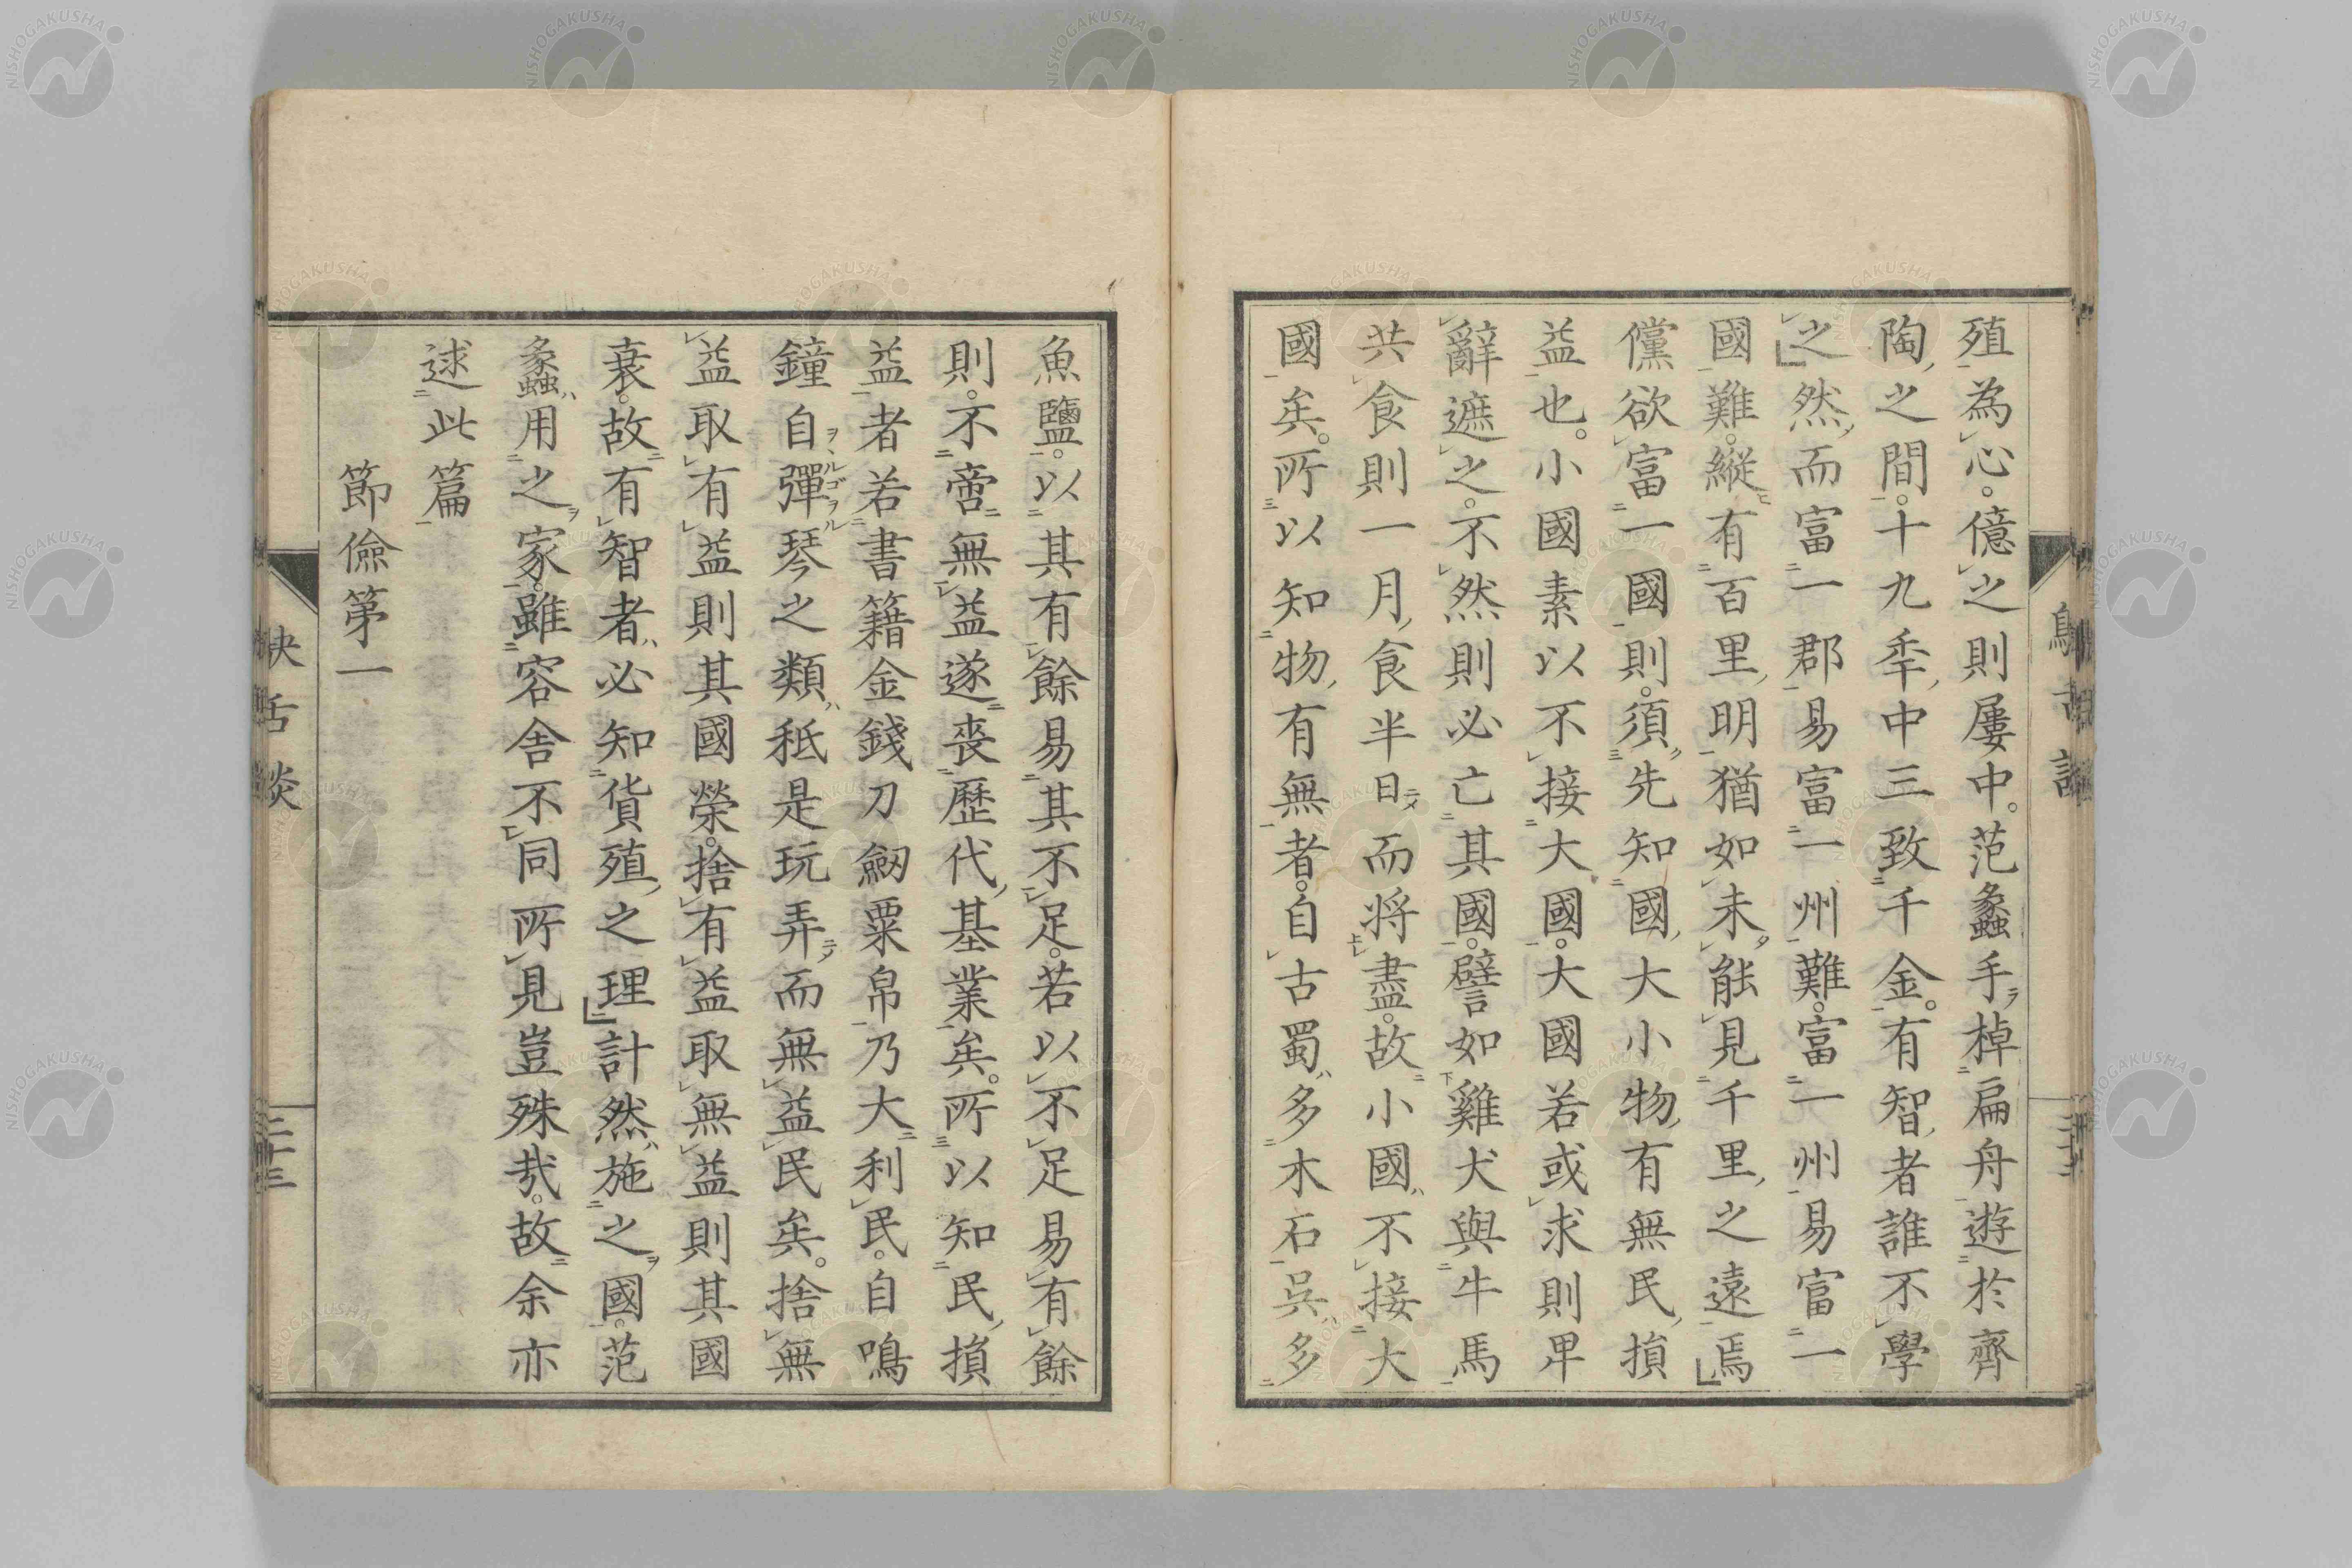 殖為心。億之則屢中。范蠡手ヲ棹扁舟遊於齊
陶之間。十九秊中三致千金。有智者誰不學
之然而富一郡易富一州難。富一州易富一
國難。縱有百里明猶如未能見千里之遠焉
儻欲富一國則。須先知國大小物有無民損
益也。小國素以不接大國。大國若或求則卑
辭遮之。不然則必亡其國。譬如雞犬與牛馬
共食則一月食半日而將盡。故小國不接大
國矣。所以知物有無者。自古蜀多木石吳多
魚鹽。以其有餘易其不足。若以不足易有餘
則。不啻無益遂喪歷代基業矣。所以知民損
益者若書籍金錢刀劒粟帛乃大利民。自鳴
鐘自彈琴之類秖是玩弄而無益民矣。捨無
益取有益則其國榮。捨有益取無益則其國
衰。故有智者必知貨殖之理計然施之國。范
蠡用之家。雖容舍不同所見豈殊哉。故余亦
逑此篇
節儉第一